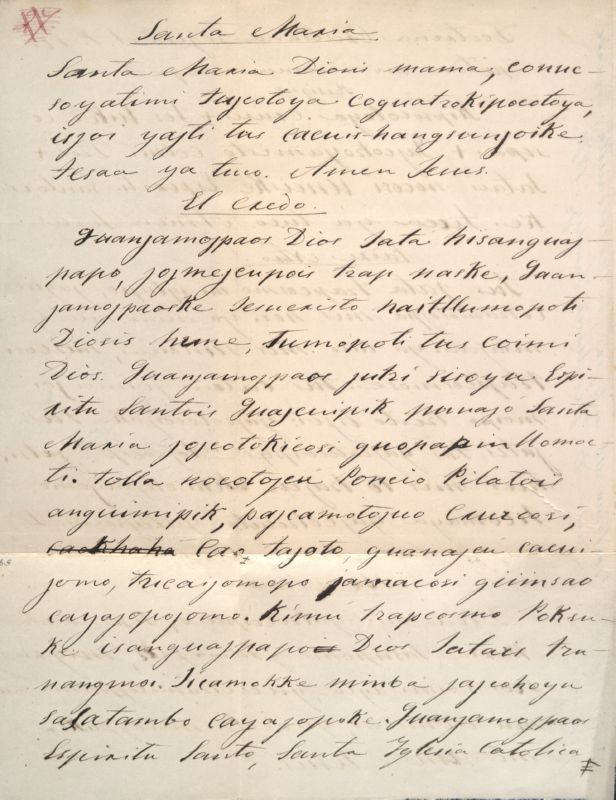 Santa Maria
Santa Maria Diosis mama, conuc-
soyatimi tajcotoya coguatzokipocotoya,
isjoi yajti tus cacuis-hangsunjoike.
Jesaa ya tuco. Amen Jesus.
El credo.
Guanjamojpaos Dios Jata hisanguaj-
papo, jojmejenpois trap naske, Guan-
jamojpaoske Jesucristo naitllumopoti
Diosis hune, Tumopoti tus coimi
Dios. Guanjamojpaos jutzi sisoyu Espi-
ritu Santois Guajenipik punajó Santa
Maria jejcotokicosi guopapin Momoc-
ti. tolla nocotojeu Poncio Pilatois
anguimipik, pajcamotojuo Cruzcosi,
Cac tajoto, guanajeu cacui
jomo, tucaijomopo jamacosi güimsao
cayajopojomo. Kimú trapcosmo Poksu-
ke isanguajpapo Dios Jatais tzu-
nangmoi. Jicamokke mimba jajcokoyu
sasatambo cayajopoke. Guanjamojpaos
Espiritu Santo, Santa Yglesia Catolica